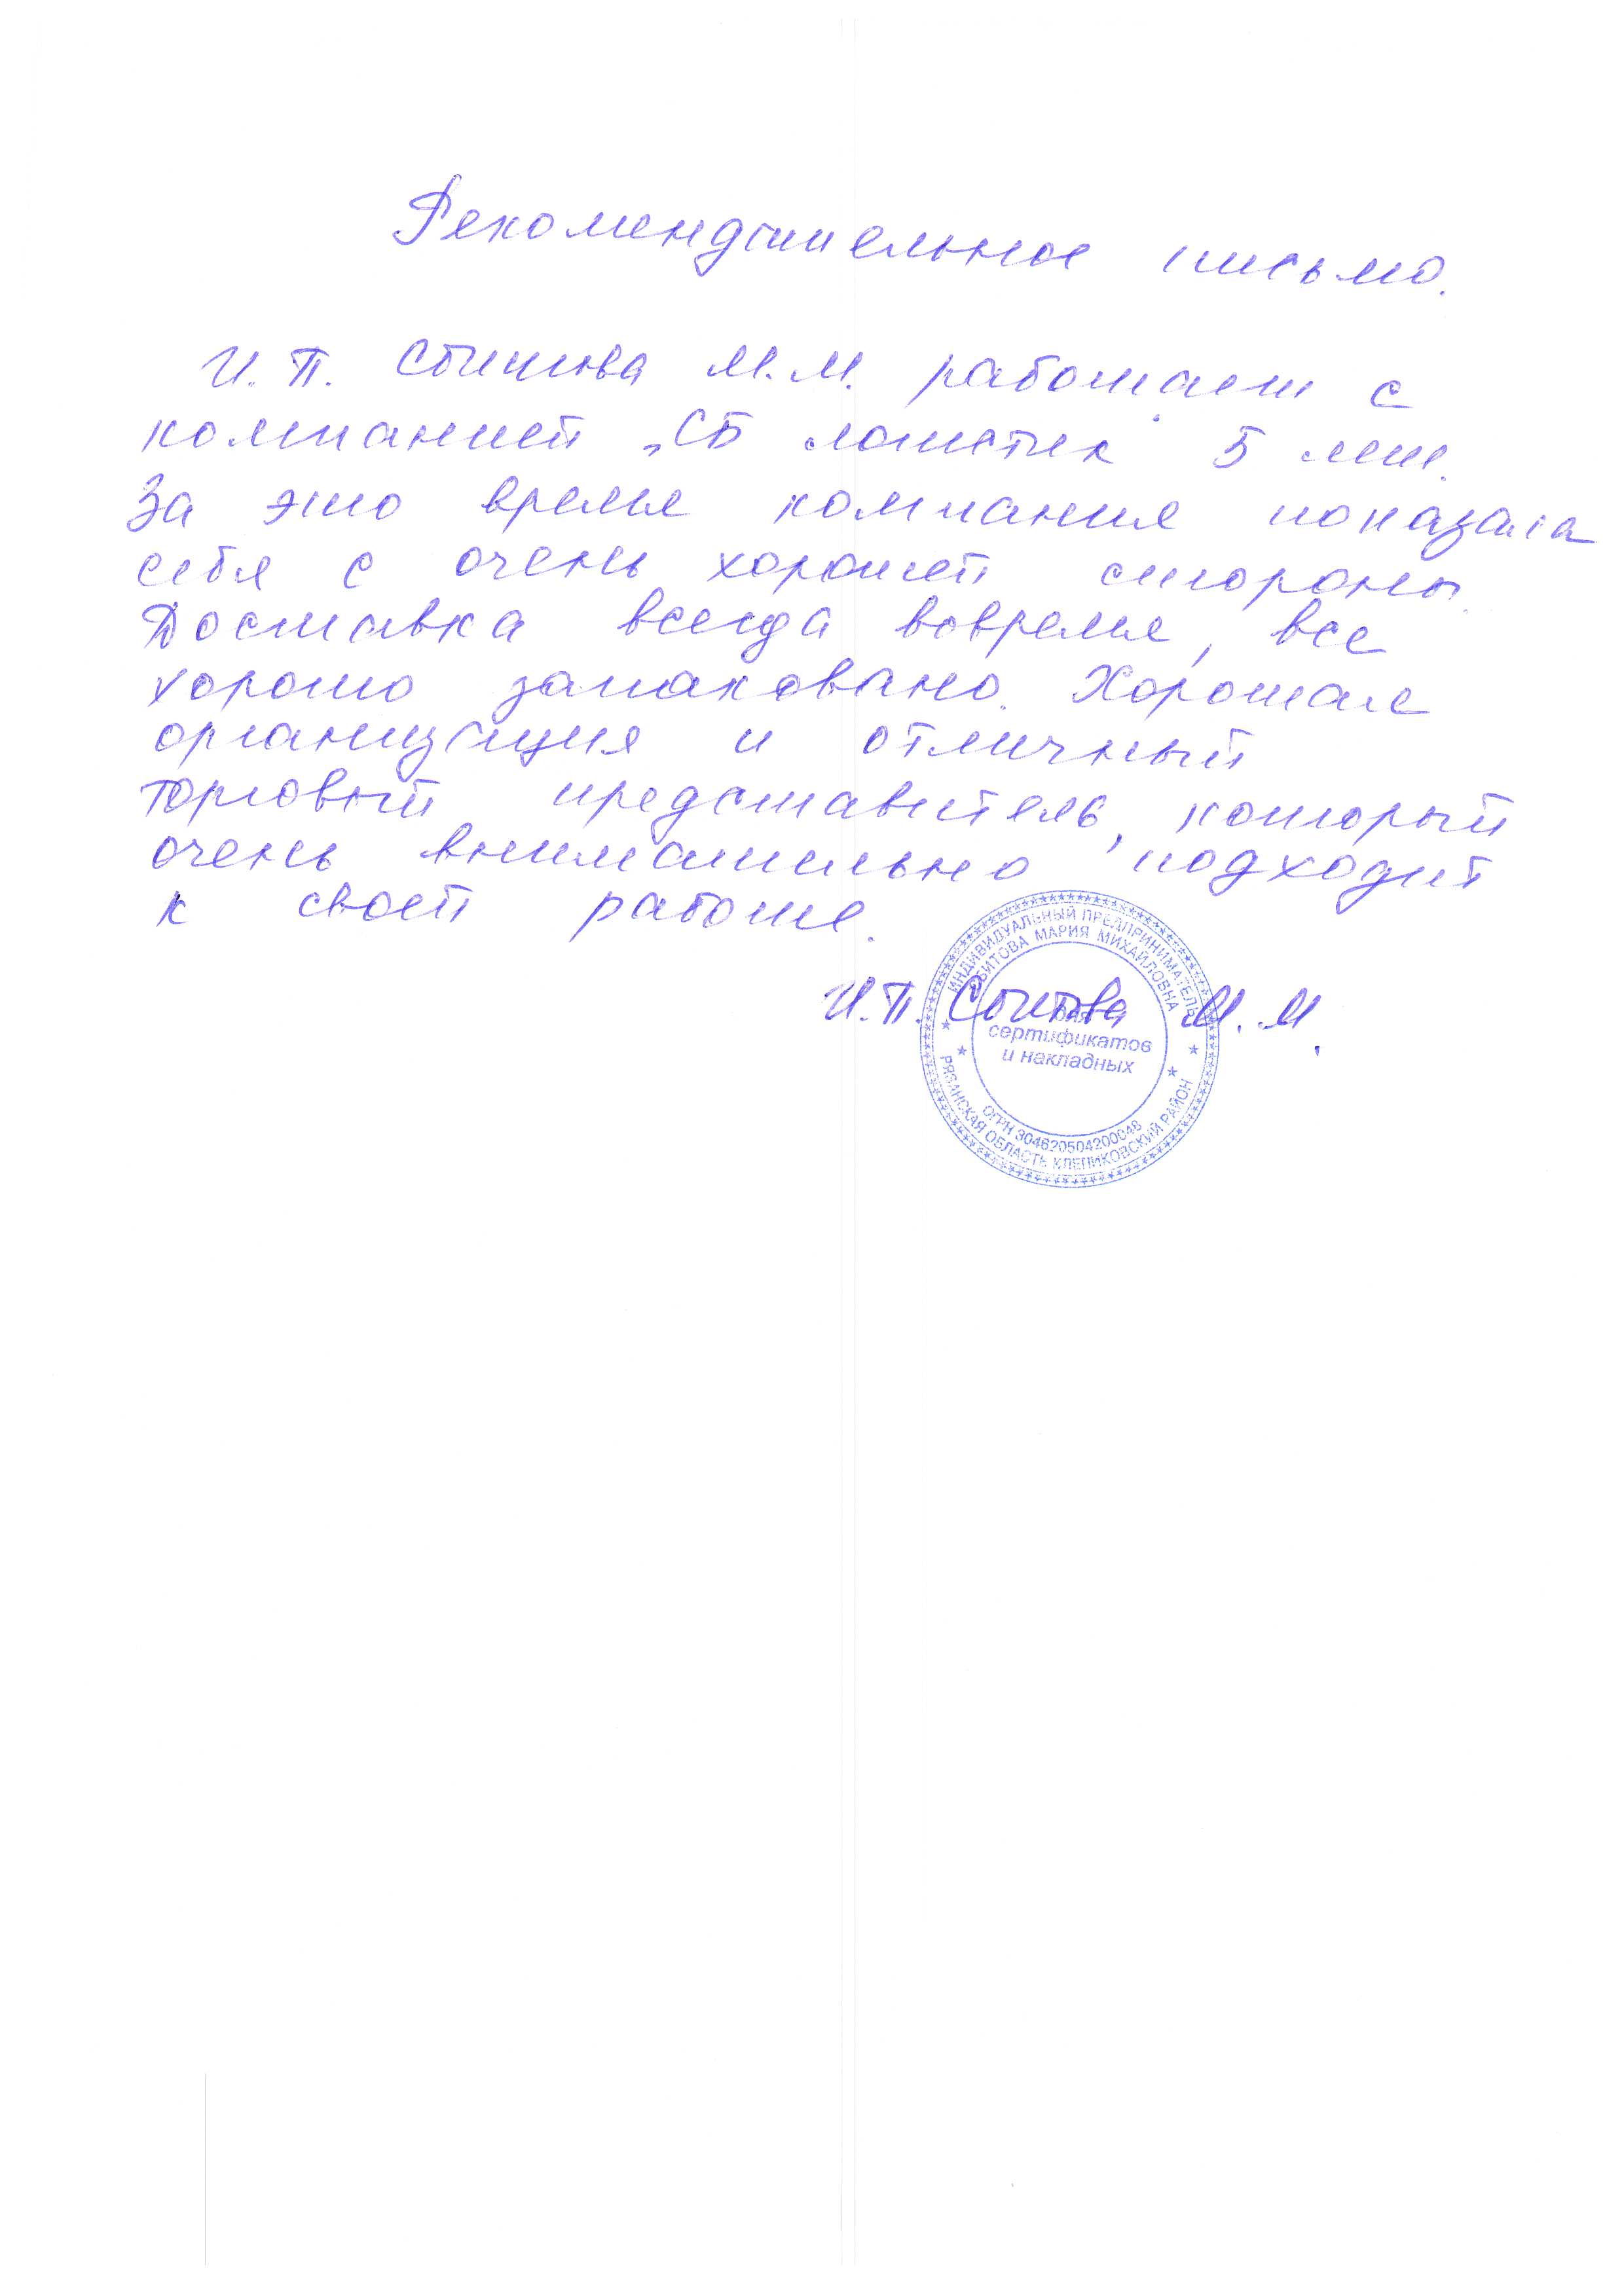 Рекомендательное письмо.
И.П. Сбитова М.М. работает с
компанией „СБ логистик" 5 лет.
За это время компания показала
себя с очень хорошей стороны.
Доставка всегда вовремя, все
хорошо запаковано. Хорошая
организация и отличный
торговый представитель, который
очень внимательно подходит
к своей работе.
И.П. Сбитова М.М.
ИНДИВИДУАЛЬНЫЙ ПРЕДПРИНИМАТЕЛЬ
СБИТОВА МАРИЯ МИХАЙЛОВНА
Для
сертификатов
и накладных
ОГРН 304620504200048
РЯЗАНСКАЯ ОБЛАСТЬ КЛЕПИКОВСКИЙ РАЙОН